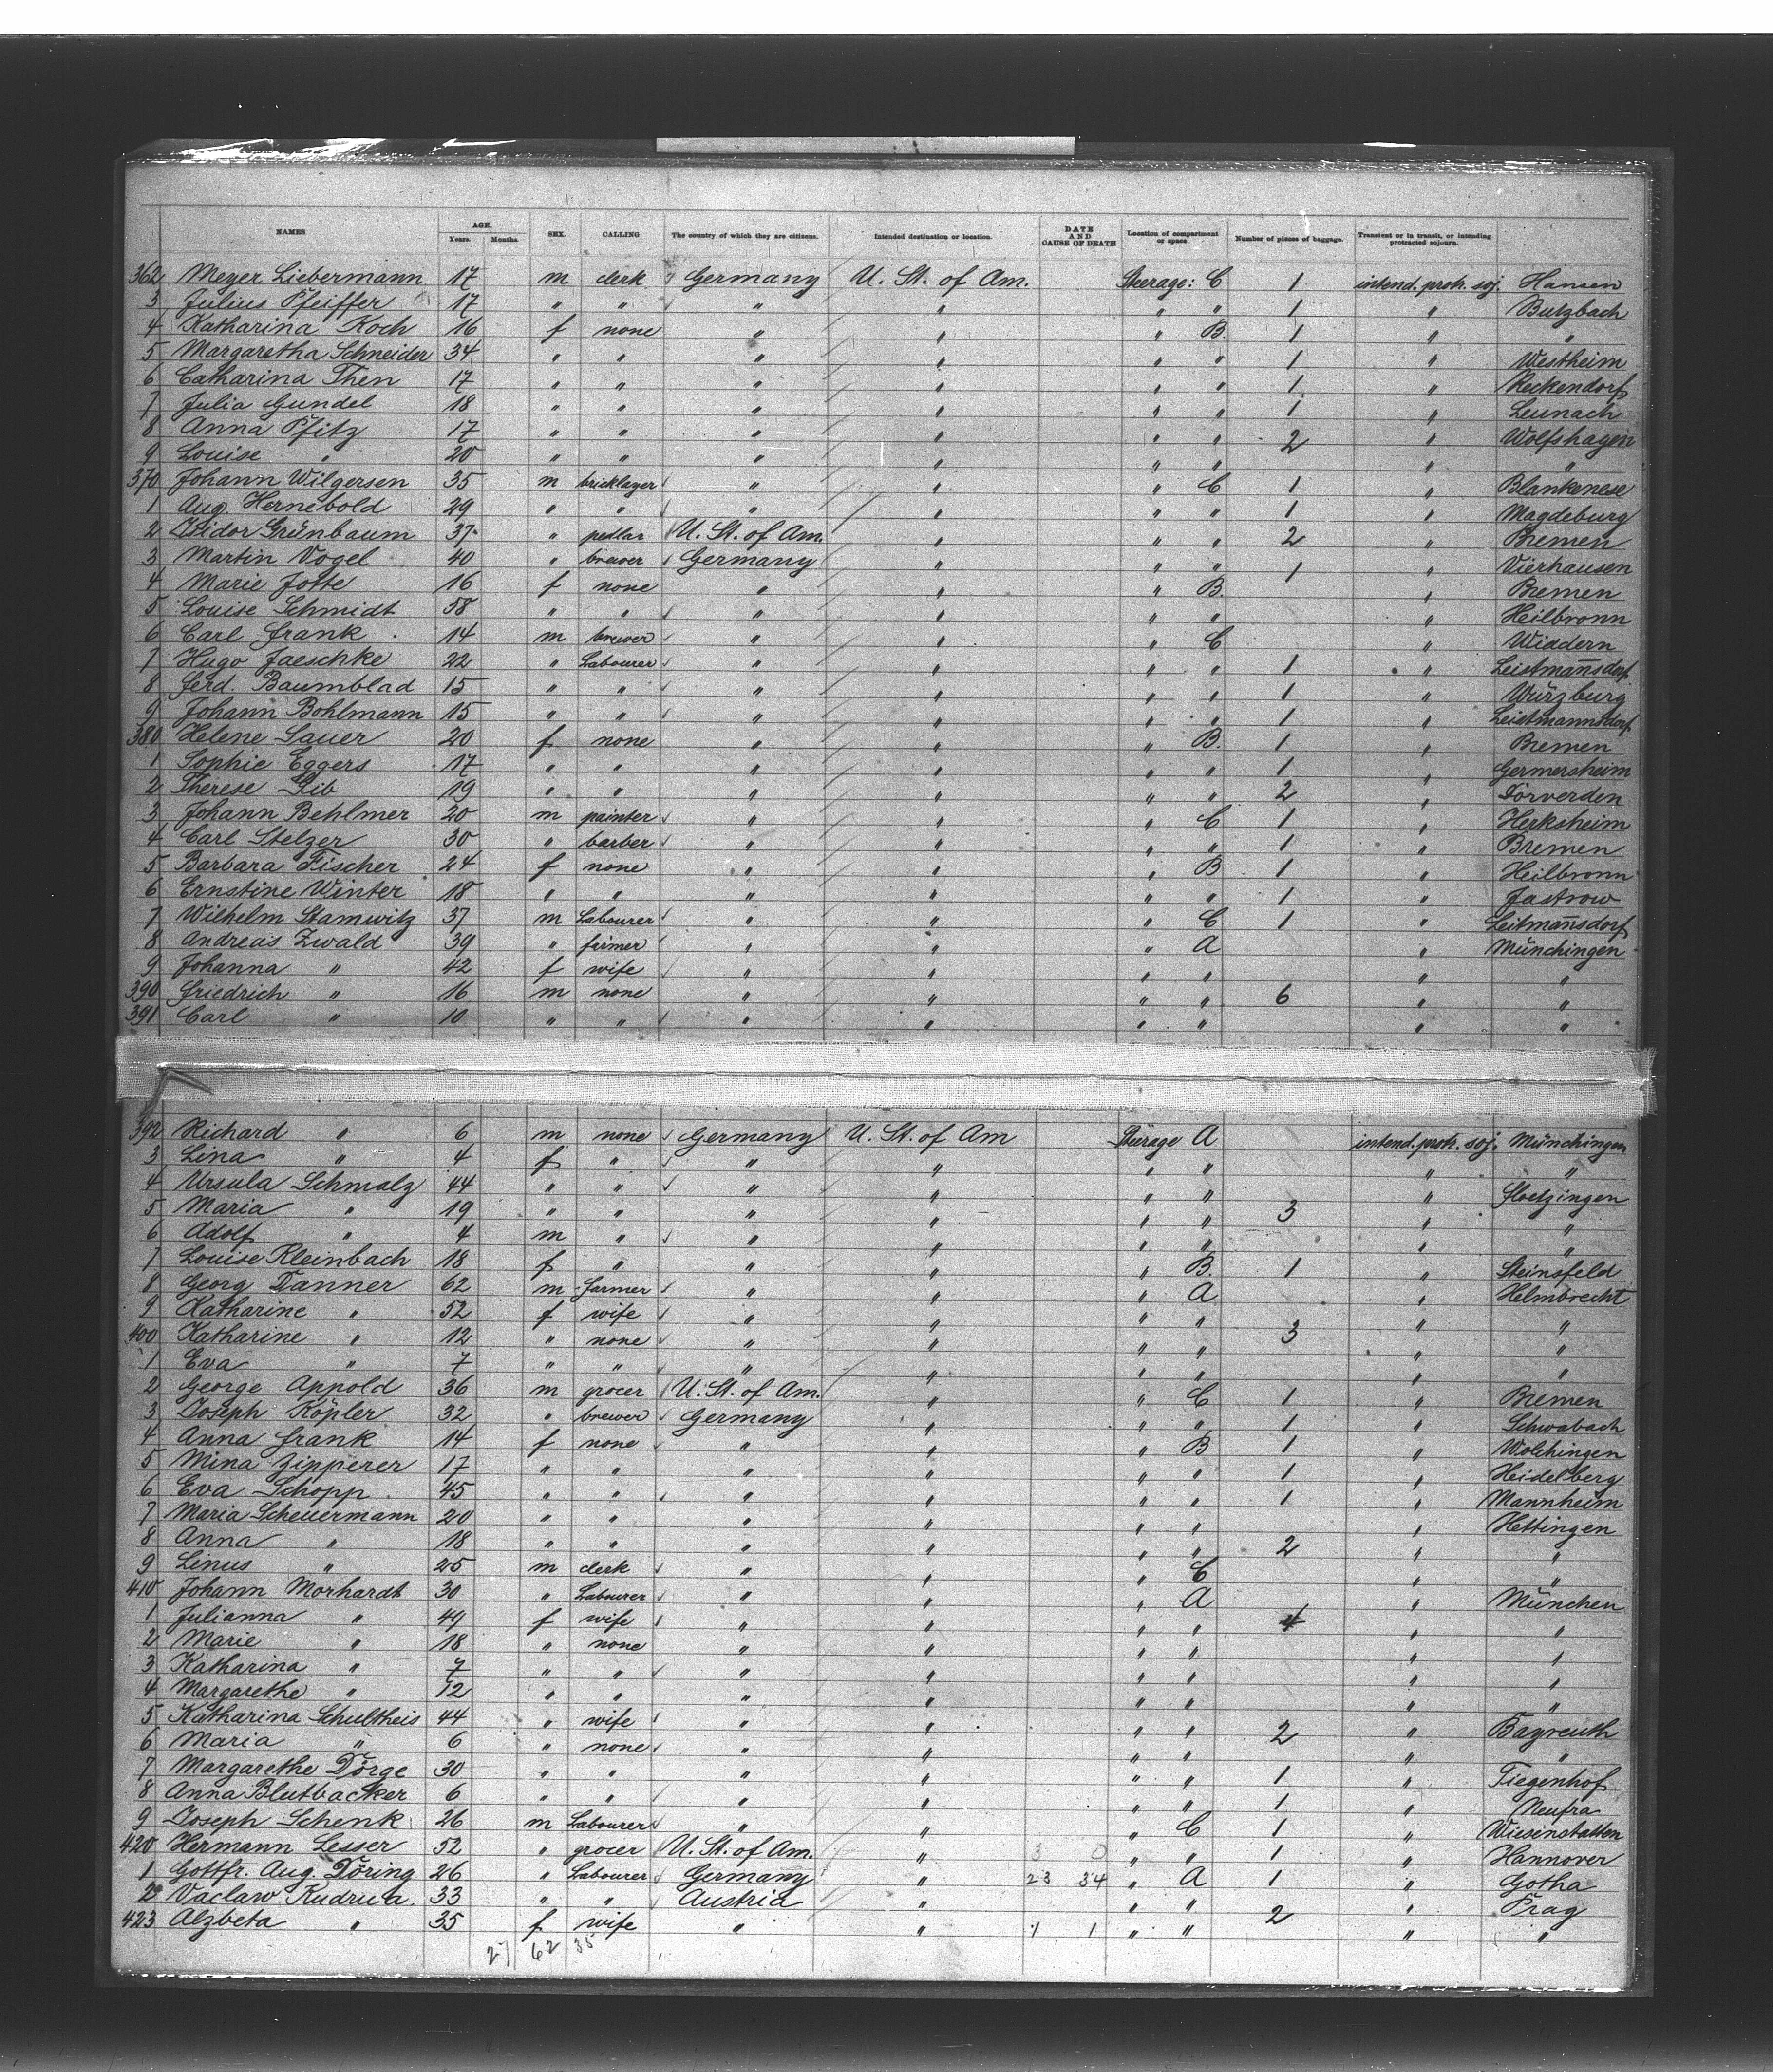 NAMES AGE. Years. Months. SEX. CALLING The country of which they are citizens. Intended destination or location. DATE AND CAUSE OF DEATH Location of compartment or space Number of pieces of baggage. Transient or in transit, or intending protracted sojourn.
362 Meyer Liebermann 17 m clerk Germany U. St. of Am. Steerage: C 1 intend. protr. soj. Hansen
3 Julius Pfeiffer 17 " " " " " " 1 " Butzbach
4 Katharina Koch 16 f none " " " B. 1 " "
5 Margaretha Schneider 34 " " " " " " 1 " Westheim
6 Catharina Then 17 " " " " " " 1 " Reckendorf
7 Julia Gundel 18 " " " " " " 1 " Leunach
8 Anna Pfitz 17 " " " " " " 2 " Wolfshagen
9 Louise " 20 " " " " " " " "
370 Johann Wilgersen 35 m bricklayer " " " C 1 " Blankenese
1 Aug. Hernebold 29 " " " " " " 1 " Magdeburg
2 Isidor Grünbaum 37 " pedlar U. St. of Am. " " " 2 " Bremen
3 Martin Vogel 40 " brewer Germany " " " 1 " Vierhausen
4 Marie Jotte 16 f none " " " B. " Bremen
5 Louise Schmidt 58 " " " " " " " Heilbronn
6 Carl Frank 14 m brewer " " " C " Widdern
7 Hugo Jaeschke 22 " Labourer " " " " 1 " Leistmannsdorf
8 Ferd. Baumblad 15 " " " " " " 1 " Würzburg
9 Johann Bohlmann 15 " " " " " " 1 " Leistmannsdorf
380 Helene Sauer 20 f none " " " B. 1 " Bremen
1 Sophie Eggers 17 " " " " " " 1 " Germersheim
2 Therese Rib 19 " " " " " " 2 " Dörverden
3 Johann Behlmer 20 m painter " " " C 1 " Herksheim
4 Carl Stelzer 30 " barber " " " " 1 " Bremen
5 Barbara Fischer 24 f none " " " B 1 " Heilbronn
6 Ernstine Winter 18 " " " " " " 1 " Jastrow
7 Wilhelm Stamwitz 37 m Labourer " " " C 1 " Leitmannsdorf
8 Andreas Zwald 39 " farmer " " " A " Münchingen
9 Johanna " 42 f wife " " " " " "
390 Friedrich " 16 m none " " " " 6 " "
391 Carl " 10 " " " " " " " "
392 Richard " 6 m none Germany U. St. of Am Steerage A intend. protr. soj. Münchingen
3 Lina " 4 f " " " " " " "
4 Ursula Schmalz 44 " " " " " " " Floetzingen
5 Maria " 19 " " " " " " 3 " "
6 Adolf " 4 m " " " " " " "
7 Louise Kleinbach 18 f " " " " B. 1 " Steinsfeld
8 Georg Danner 62 m farmer " " " A " Helmbrecht
9 Katharine " 52 f wife " " " " " "
400 Katharine " 12 " none " " " " 3 " "
1 Eva " 7 " " " " " " " "
2 George Appold 36 m grocer U. St. of Am. " " C 1 " Bremen
3 Joseph Köpler 32 " brewer Germany " " " 1 " Schwabach
4 Anna Frank 14 f none " " " B 1 " Wolchingen
5 Mina Zipperer 17 " " " " " " 1 " Heidelberg
6 Eva Schopp 45 " " " " " " 1 " Mannheim
7 Maria Scheuermann 20 " " " " " " " Hettingen
8 Anna " 18 " " " " " " 2 " "
9 Linus " 25 m clerk " " " C " "
410 Johann Morhardt 30 " Labourer " " " A " München
1 Julianna " 49 f wife " " " " 4 " "
2 Marie " 18 " none " " " " " "
3 Katharina " 7 " " " " " " " "
4 Margarethe " 12 " " " " " " " "
5 Katharina Schultheis 44 " wife " " " " 2 " Bayreuth
6 Maria " 6 " none " " " " " "
7 Margarethe Dörge 30 " " " " " " 1 " Tiegenhof
8 Anna Blutbacker 6 " " " " " " 1 " Neufra
9 Joseph Schenk 26 m Labourer " " " C 1 " Wiesenstatten
420 Hermann Lesser 52 " grocer U. St. of Am. " 3 0 " " 1 " Hannover
1 Gottfr. Aug. Döring 26 " Labourer Germany " 23 34 " A 1 " Gotha
2 Vaclaw Kudrna 33 " " Austria " " " 2 " Prag
423 Alzbeta " 35 f wife " " 1 1 " " " "
27 62 35